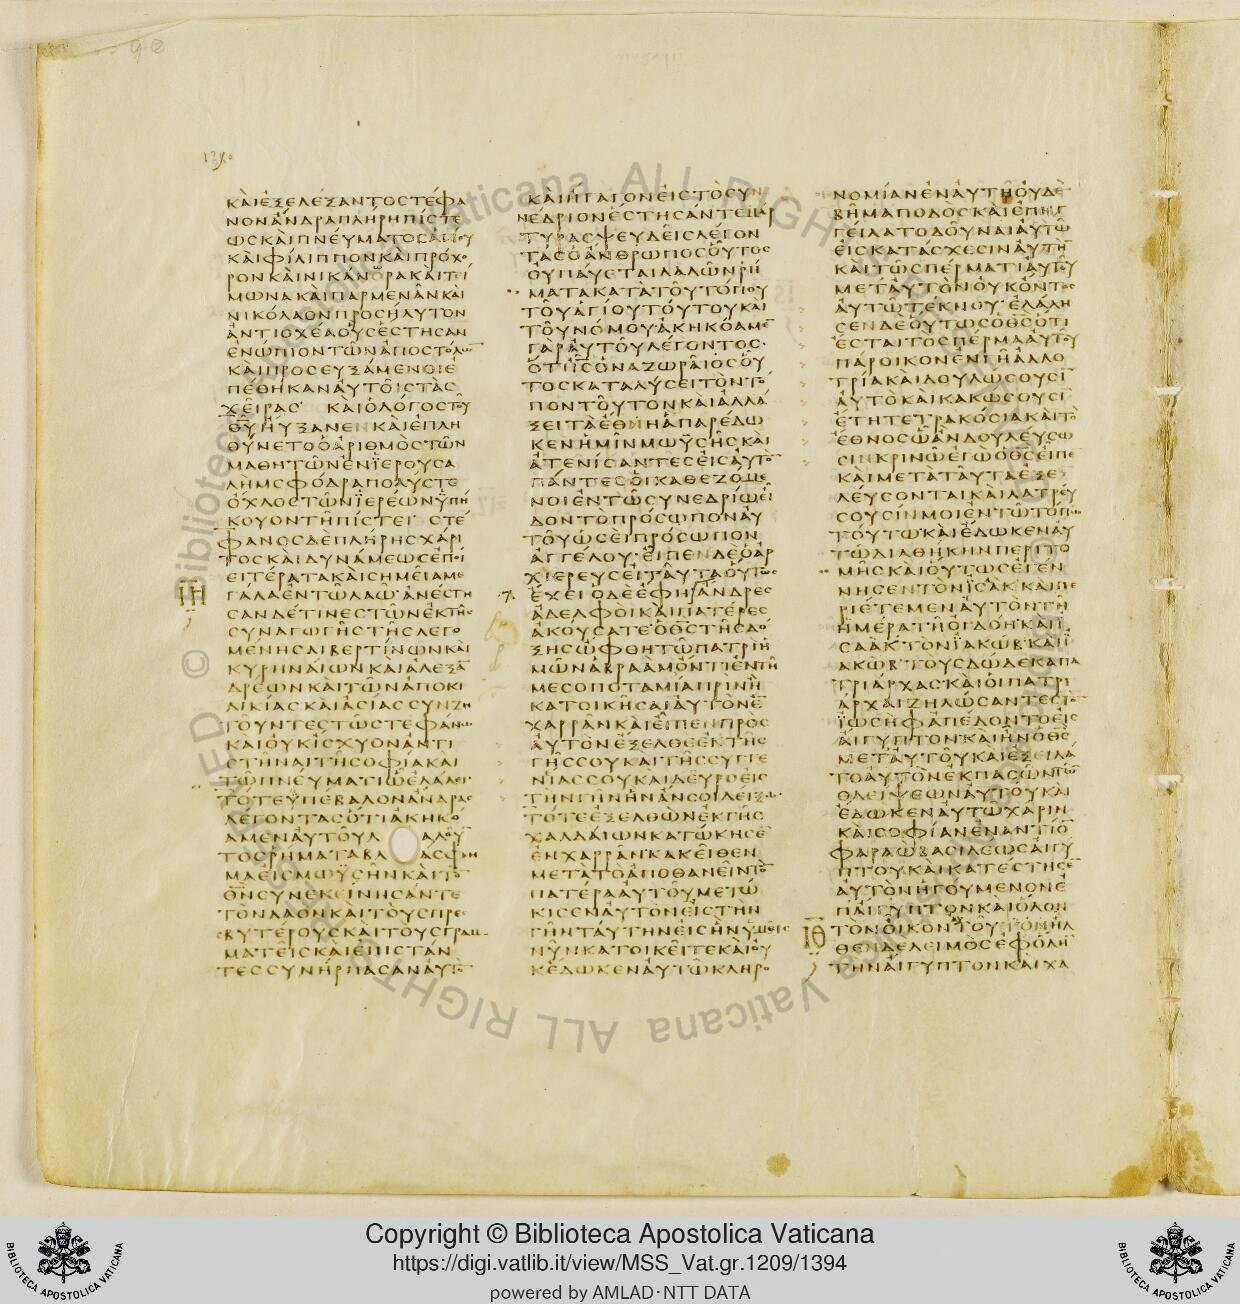 ΚΑΙΕΞΕΛΕΞΑΝΤΟΣΤΕΦΑ
ΝΟΝΑΝΔΡΑΠΛΗΡΗΠΙΣΤΕ
ΩΣΚΑΙΠΝΕΥΜΑΤΟΣΑΓΙΟΥ
ΚΑΙΦΙΛΙΠΠΟΝΚΑΙΠΡΟΧΟ
ΡΟΝΚΑΙΝΙΚΑΝΟΡΑΚΑΙΤΕΙ
ΜΩΝΑΚΑΙΠΑΡΜΕΝΑΝΚΑΙ
ΝΙΚΟΛΑΟΝΠΡΟΣΗΛΥΤΟΝ
ΑΝΤΙΟΧΕΑΟΥΣΕΣΤΗΣΑΝ
ΕΝΩΠΙΟΝΤΩΝΑΠΟΣΤΟΛΩ̅
ΚΑΙΠΡΟΣΕΥΞΑΜΕΝΟΙΕ
ΠΕΘΗΚΑΝΑΥΤΟΙΣΤΑΣ
ΧΕΙΡΑΣ ΚΑΙΟΛΟΓΟΣΤΟΥ
Θ̅Υ̅ΗΥΞΑΝΕΝΚΑΙΕΠΛΗ
ΘΥΝΕΤΟΟΑΡΙΘΜΟΣΤΩΝ
ΜΑΘΗΤΩΝΕΝΪΕΡΟΥΣΑ
ΛΗΜΣΦΟΔΡΑΠΟΛΥΣΤΕ
ΟΧΛΟΣΤΩΝΪΕΡΕΩΝΥΠΗ
ΚΟΥΟΝΤΗΠΙΣΤΕΙ ΣΤΕ
ΦΑΝΟΣΔΕΠΛΗΡΗΣΧΑΡΙ
ΤΟΣΚΑΙΔΥΝΑΜΕΩΣΕΠΟΙ
ΕΙΤΕΡΑΤΑΚΑΙΣΗΜΕΙΑΜΕ
ΙΗ ΓΑΛΑΕΝΤΩΛΑΩ ΑΝΕΣΤΗ
ΣΑΝΔΕΤΙΝΕΣΤΩΝΕΚΤΗΣ
ΣΥΝΑΓΩΓΗΣΤΗΣΛΕΓΟ
ΜΕΝΗΣΛΙΒΕΡΤΙΝΩΝΚΑΙ
ΚΥΡΗΝΑΙΩΝΚΑΙΑΛΕΞΑ̅
ΔΡΕΩΝΚΑΙΤΩΝΑΠΟΚΙ
ΛΙΚΙΑΣΚΑΙΑΣΙΑΣΣΥΝΖΗ
ΤΟΥΝΤΕΣΤΩΣΤΕΦΑΝΩ
ΚΑΙΟΥΚΙΣΧΥΟΝΑΝΤΙ
ΣΤΗΝΑΙΤΗΣΟΦΙΑΚΑΙ
ΤΩΠΝΕΥΜΑΤΙΩΕΛΑΛΕΙ
ΤΟΤΕΥΠΕΒΑΛΟΝΑΝΔΡΑΣ
ΛΕΓΟΝΤΑΣΟΤΙΑΚΗΚΟ
ΑΜΕΝΑΥΤΟΥΛ ΑΛΟΥ̅
ΤΟΣΡΗΜΑΤΑΒΛ ΑΣΦΗ
ΜΑΕΙΣΜΩΥΣΗΝΚΑΙΤΟ̅
Θ̅Ν̅ΣΥΝΕΚΕΙΝΗΣΑΝΤΕ
ΤΟΝΛΑΟΝΚΑΙΤΟΥΣΠΡΕΣ
ΒΥΤΕΡΟΥΣΚΑΙΤΟΥΣΓΡΑΜ
ΜΑΤΕΙΣΚΑΙΕΠΙΣΤΑΝ
ΤΕΣΣΥΝΗΡΠΑΣΑΝΑΥΤΟ̅
ΚΑΙΗΓΑΓΟΝΕΙΣΤΟΣΥΝ
ΝΕΔΡΙΟΝΕΣΤΗΣΑΝΤΕΜΑΡ
ΤΥΡΑΣΨΕΥΔΕΙΣΛΕΓΟΝ
ΤΑΣΟΑΝΘΡΩΠΟΣΟΥΤΟΣ
ΟΥΠΑΥΕΤΑΙΛΑΛΩΝΡΗ
ΜΑΤΑΚΑΤΑΤΟΥΤΟΠΟΥ
ΤΟΥΑΓΙΟΥΤΟΥΤΟΥΚΑΙ
ΤΟΥΝΟΜΟΥ ΑΚΗΚΟΑΜΕ̅
ΓΑΡΑΥΤΟΥΛΕΓΟΝΤΟΣ
ΟΤΙΙ̅Σ̅ΟΝΑΖΩΡΑΙΟΣΟΥ
ΤΟΣΚΑΤΑΛΥΣΕΙΤΟΝΤΟ
ΠΟΝΤΟΥΤΟΝΚΑΙΑΛΛΑ
ΞΕΙΤΑΕΘΗΑΠΑΡΕΔΩ
ΚΕΝΗΜΙΝΜΩΥΣΗΣΚΑΙ
ΑΤΕΝΙΣΑΝΤΕΣΕΙΣΑΥΤΟ̅
ΠΑΝΤΕΣΟΙΚΑΘΕΖΟΜΕ
ΝΟΙΕΝΤΩΣΥΝΕΔΡΙΩΕΙ
ΔΟΝΤΟΠΡΟΣΩΠΟΝΑΥ
ΤΟΥΩΣΕΙΠΡΟΣΩΠΟΝ
ΑΓΓΕΛΟΥ ΕΙΠΕΝΔΕΟΑΡ
ΧΙΕΡΕΥΣΕΙΤΑΥΤΑΟΥΤΩΣ
ΕΧΕΙΟΔΕΕΦΗΑΝΔΡΕΣ
ΑΔΕΛΦΟΙΚΑΙΠΑΤΕΡΕΣ
ΑΚΟΥΣΑΤΕ Ο Θ̅Σ̅ΤΗΣΔΟ
ΞΗΣΩΦΘΗΤΩΠΑΤΡΙΗ
ΜΩΝΑΒΡΑΑΜΟΝΤΙΕΝΤΗ
ΜΕΣΟΠΟΤΑΜΙΑΠΡΙΝΗ
ΚΑΤΟΙΚΗΣΑΙΑΥΤΟΝΕ̅
ΧΑΡΡΑΝΚΑΙΕΙΠΕΝΠΡΟΣ
ΑΥΤΟΝΕΞΕΛΘΕΕΚΤΗΣ
ΓΗΣΣΟΥΚΑΙΤΗΣΣΥΓΓΕ
ΝΙΑΣΣΟΥΚΑΙΔΕΥΡΟΕΙΣ
ΤΗΝΓΗΝΗΝΑΝΣΟΙΔΕΙΞΩ
ΤΟΤΕΕΞΕΛΘΩΝΕΚΓΗΣ
ΧΑΛΔΑΙΩΝΚΑΤΩΚΗΣΕ̅
ΕΝΧΑΡΡΑΝ ΚΑΚΕΙΘΕΝ
ΜΕΤΑΤΟΑΠΟΘΑΝΕΙΝΤΟ̅
ΠΑΤΕΡΑΑΥΤΟΥΜΕΤΩ
ΚΙΣΕΝΑΥΤΟΝΕΙΣΤΗΝ
ΓΗΝΤΑΥΤΗΝΕΙΣΗΝΥΜΕΙΣ
ΝΥΝΚΑΤΟΙΚΕΙΤΕΚΑΙΟΥ
ΚΕΔΩΚΕΝΑΥΤΩΚΛΗΡΟ
ΝΟΜΙΑΝΕΝΑΥΤΗΟΥΔΕ
ΒΗΜΑΠΟΔΟΣΚΑΙΕΠΗΓ
ΓΕΙΛΑΤΟΔΟΥΝΑΙΑΥΤΩ
ΕΙΣΚΑΤΑΣΧΕΣΙΝΑΥΤΗ̅
ΚΑΙΤΩΣΠΕΡΜΑΤΙΑΥΤΟΥ
ΜΕΤΑΥΤΟΝΟΥΚΟΝΤΟΣ
ΑΥΤΩΤΕΚΝΟΥ ΕΛΑΛΗ
ΣΕΝΔΕΟΥΤΩΣΟΘ̅Σ̅ΟΤΙ
ΕΣΤΑΙΤΟΣΠΕΡΜΑΑΥΤΟΥ
ΠΑΡΟΙΚΟΝΕΝΓΗΑΛΛΟ
ΤΡΙΑΚΑΙΔΟΥΛΩΣΟΥΣΙ̅
ΑΥΤΟΚΑΙΚΑΚΩΣΟΥΣΙ
ΕΤΗΤΕΤΡΑΚΟΣΙΑΚΑΙΤΟ
ΕΘΝΟΣΩΑΝΔΟΥΛΕΥΣΩ
ΣΙΝΚΡΙΝΩΕΓΩΟΘ̅Σ̅ΕΙΠΕ̅
ΚΑΙΜΕΤΑΤΑΥΤΑΕΞΕ
ΛΕΥΣΟΝΤΑΙΚΑΙΛΑΤΡΕΥ
ΣΟΥΣΙΝΜΟΙΕΝΤΩΤΟΠΩ
ΤΟΥΤΩΚΑΙΕΔΩΚΕΝΑΥ
ΤΩΔΙΑΘΗΚΗΝΠΕΡΙΤΟ
ΜΗΣΚΑΙΟΥΤΩΣΕΓΕΝ
ΝΗΣΕΝΤΟΝΪΣΑΚΚΑΙΠΕ
ΡΙΕΤΕΜΕΝΑΥΤΟΝΤΗ
ΗΜΕΡΑΤΗΟΓΔΟΗΚΑΙΪ
ΣΑΑΚ ΤΟΝΪΑΚΩΒ ΚΑΙΪ
ΑΚΩΒ ΤΟΥΣΔΩΔΕΚΑΠΑ
ΤΡΙΑΡΧΑΣ ΚΑΙΟΙΠΑΤΡΙ
ΑΡΧΑΙΖΗΛΩΣΑΝΤΕΣΤΟ̅
ΪΩΣΗΦΑΠΕΔΟΝΤΟΕΙΣ
ΑΙΓΥΠΤΟΝΚΑΙΗΝΟΘ̅Σ̅
ΜΕΤΑΥΤΟΥΚΑΙΕΞΕΙΛΑ
ΤΟΑΥΤΟΝΕΚΠΑΣΩΝΤΩ̅
ΘΛΕΙΨΕΩΝΑΥΤΟΥΚΑΙ
ΕΔΩΚΕΝΑΥΤΩΧΑΡΙΝ
ΚΑΙΣΟΦΙΑΝΕΝΑΝΤΙΟ̅
ΦΑΡΑΩΒΑΣΙΛΕΩΣΑΙΓΥ
ΠΤΟΥΚΑΙΚΑΤΕΣΤΗΣΕ̅
ΑΥΤΟΝΗΓΟΥΜΕΝΟΝΕ
ΠΑΙΓΥΠΤΟΝΚΑΙΟΛΟΝ
ΙΘ ΤΟΝΟΙΚΟΝΑΥΤΟΥ ΗΛ
ΘΕΝΔΕΛΕΙΜΟΣΕΦΟΛΗ̅
ΤΗΝΑΙΓΥΠΤΟΝΚΑΙΧΑ
Copyright © Biblioteca Apostolica Vaticana
https://digi.vatlib.it/view/MSS_Vat.gr.1209/1394
powered by AMLAD·NTT DATA
BIBLIOTECA APOSTOLICA VATICANA
BIBLIOTECA APOSTOLICA VATICANA